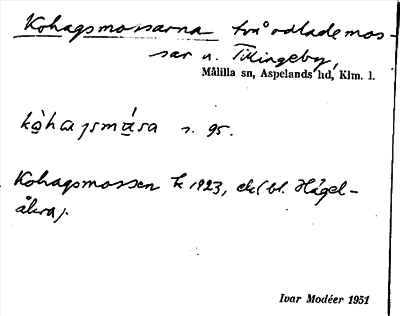 Kohagsmossarna två odlade mos-
sar u. Tillingeby,
Målilla sn, Aspelands hd, Klm. l.
s. 95.
Kohagsmossen k 1923, ek (bl. Hågel-
åkra).
Ivar Modéer 1951